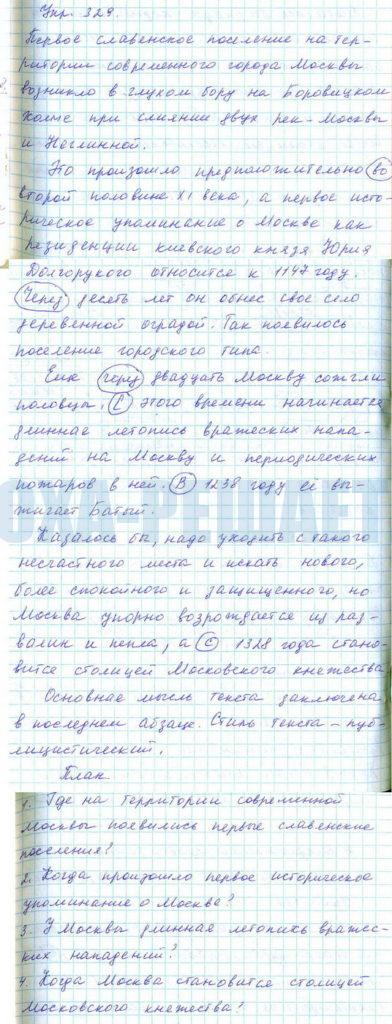 Упр. 329.
Первое славенское поселение на тер-
ритории современного города Москвы
возникло в глухом бору на Боровицком
холме при слиянии двух рек - Москвы
и Неглинной.
Это произошло предположительно во
второй половине XI века, а первое исто-
рическое упоминание о Москве как
резиденции киевского князя Юрия
Долгорукого относится к 1147 году.
Через десеть лет он обнес свое село
деревенной оградой. Так появилось
поселение городского типа.
Еще через двадцать Москву сожгли
половцы. С этого времени начинается
длинная летопись вражеских напа-
дений на Москву и периодических
пожаров в ней. В 1238 году её вы-
жигает Батый.
Казалось бы, надо уходить с такого
несчастного места и искать нового,
более спокойного и защищенного, но
Москва упорно возрождается из раз-
валин и пепла, а с 1328 года стано-
вится столицей Московского кнежества
Основная мысль текста заключена
в последнем абзаце. Стиль текста - пуб-
лицистический.
План
1. Где на территории современной
Москвы появились первые славенские
поселения?
2. Когда произошло первое историческое
упоминание о Москве?
3. У Москвы длинная летопись вражес-
ких нападений?
4. Когда Москва становится столицей
Московского кнежества?